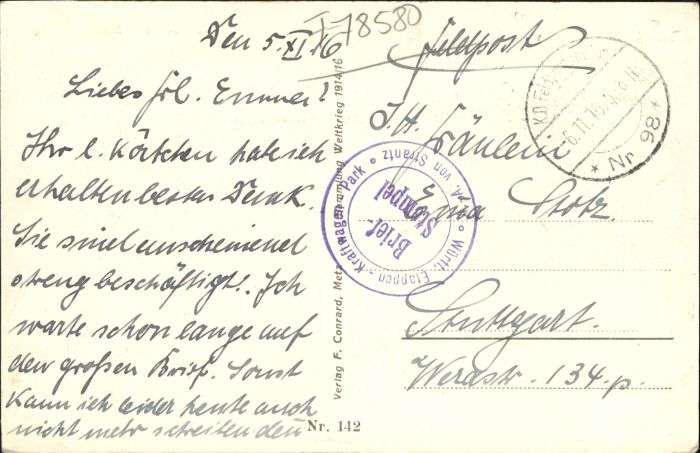 J 78580
Den 5. XI 16
Liebes Frl. Emma!
Ihr l. Kärtchen habe ich
erhalten besten Dank.
Sie sind anscheinend
streng beschäftigt! Ich
warte schon lange auf
den großen Brief. Sonst
kann ich leider heute auch
nicht mehr schreiben denn
Feldpost.
Fräulein
Emma Stotz.
Stuttgart.
Werastr. 134. p.
K.D. Feld
6.11.16
* Nr. 98 *
Württ. Etappen-Kraftwagen-Park
A. von Strantz
Brief-
Stempel
Verlag F. Conrard, Metz
Sammlung Weltkrieg 1914/16
Nr. 142